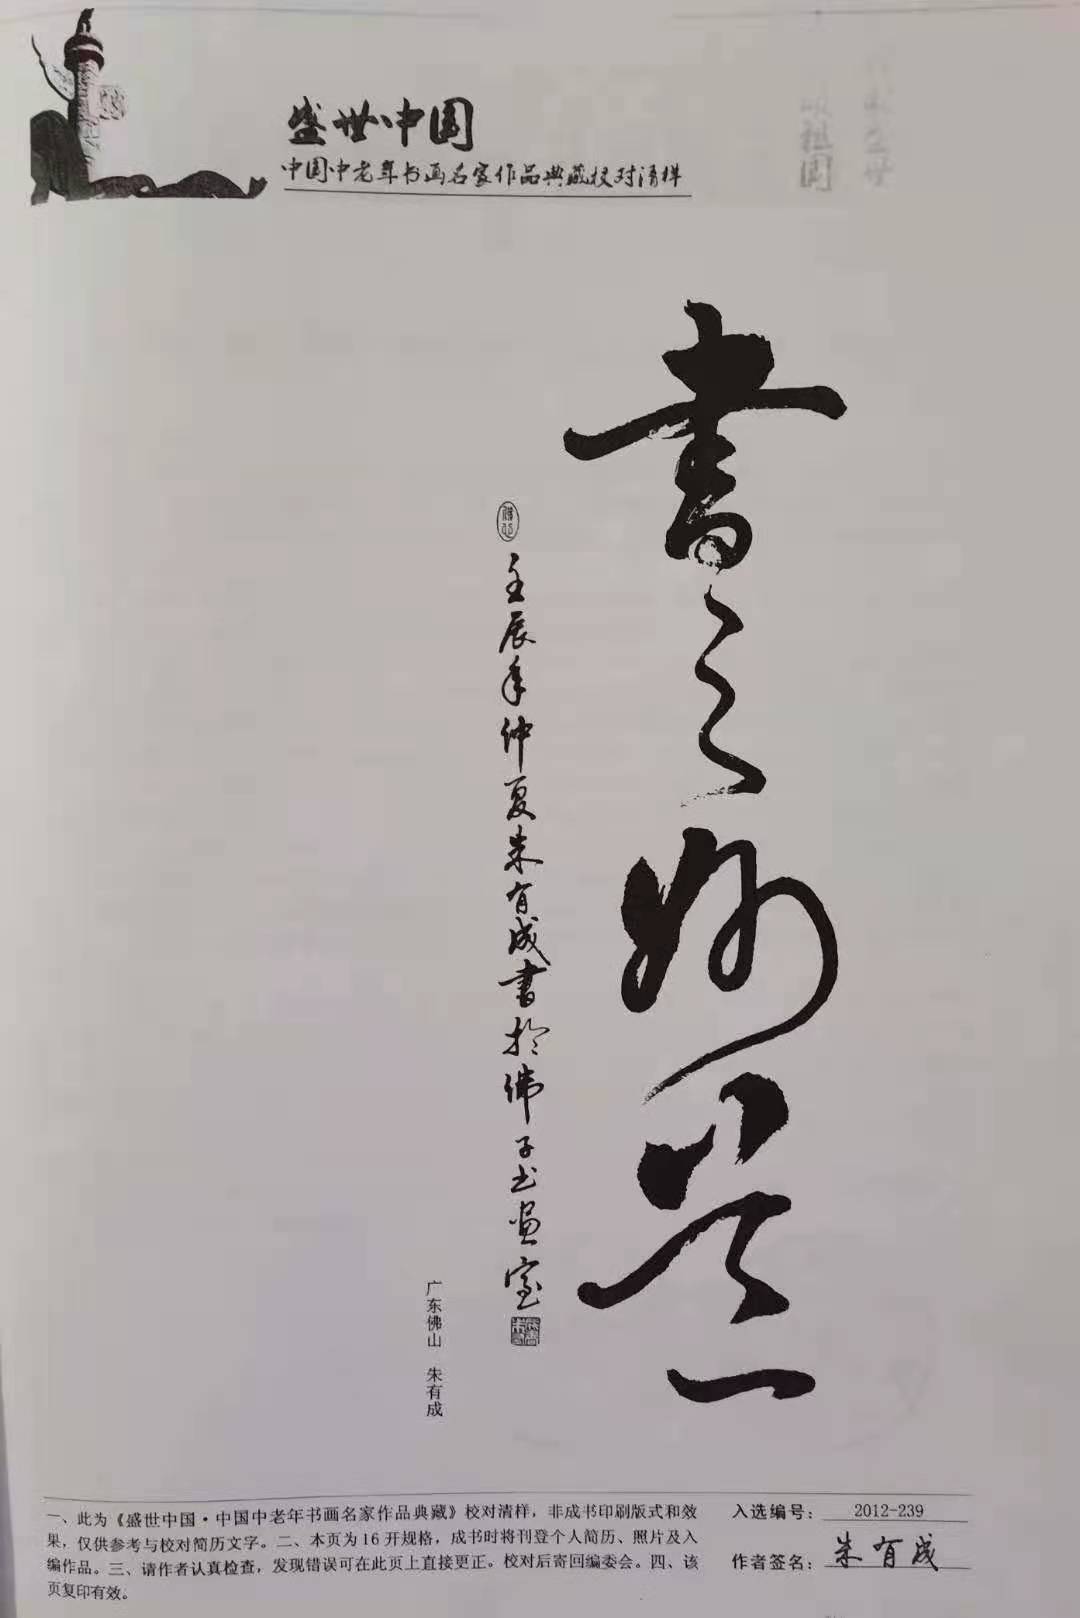 盛世中国
中国中老年书画名家作品典藏校对清样
書之妙其一
壬辰年仲夏朱有成書於佛子书画室
广东佛山 朱有成
一、此为《盛世中国·中国中老年书画名家作品典藏》校对清样，非成书印刷版式和效
果，仅供参考与校对简历文字。二、本页为16开规格，成书时将刊登个人简历、照片及入
编作品。三、请作者认真检查，发现错误可在此页上直接更正。校对后寄回编委会。四、该
页复印有效。
入选编号： 2012-239
作者签名： 朱有成